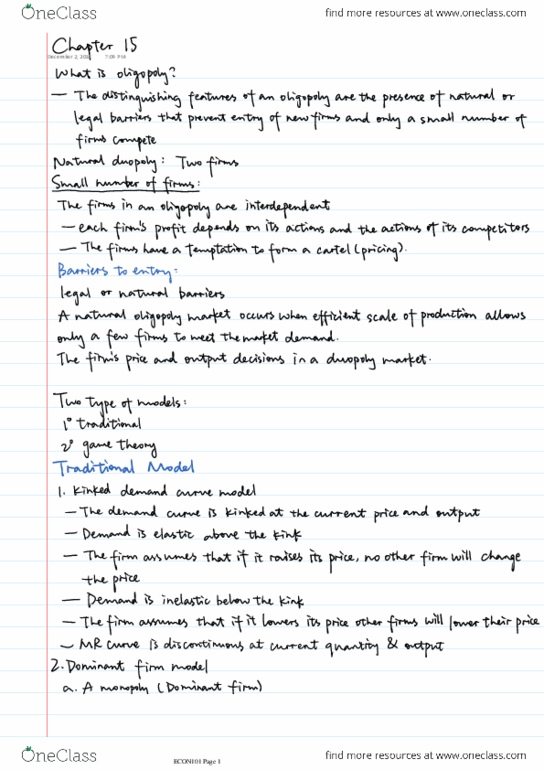 OneClass
find more resources at www.oneclass.com
Chapter 15
December 2, 7:05 PM
What is oligopoly?
— The distinguishing features of an oligopoly are the presence of natural or
legal barriers that prevent entry of new firms and only a small number of
firms compete
Natural duopoly: Two firms
Small number of firms:
The firms in an oligopoly are interdependent
— each firm's profit depends on its actions and the actions of its competitors
— The firms have a temptation to form a cartel (pricing).
Barriers to entry:
legal or natural barriers
A natural oligopoly market occurs when efficient scale of production allows
only a few firms to meet the market demand.
The firm's price and output decisions in a duopoly market.
Two type of models:
1° traditional
2° game theory
Traditional Model
1. Kinked demand curve model
— The demand curve is kinked at the current price and output
— Demand is elastic above the kink
— The firm assumes that if it raises its price, no other firm will change
the price
— Demand is inelastic below the kink
— The firm assumes that if it lowers its price other firms will lower their price
— MR curve is discontinuous at current quantity & output
2. Dominant firm model
a. A monopoly (Dominant firm)
OneClass
ECON101 Page 1
find more resources at www.oneclass.com